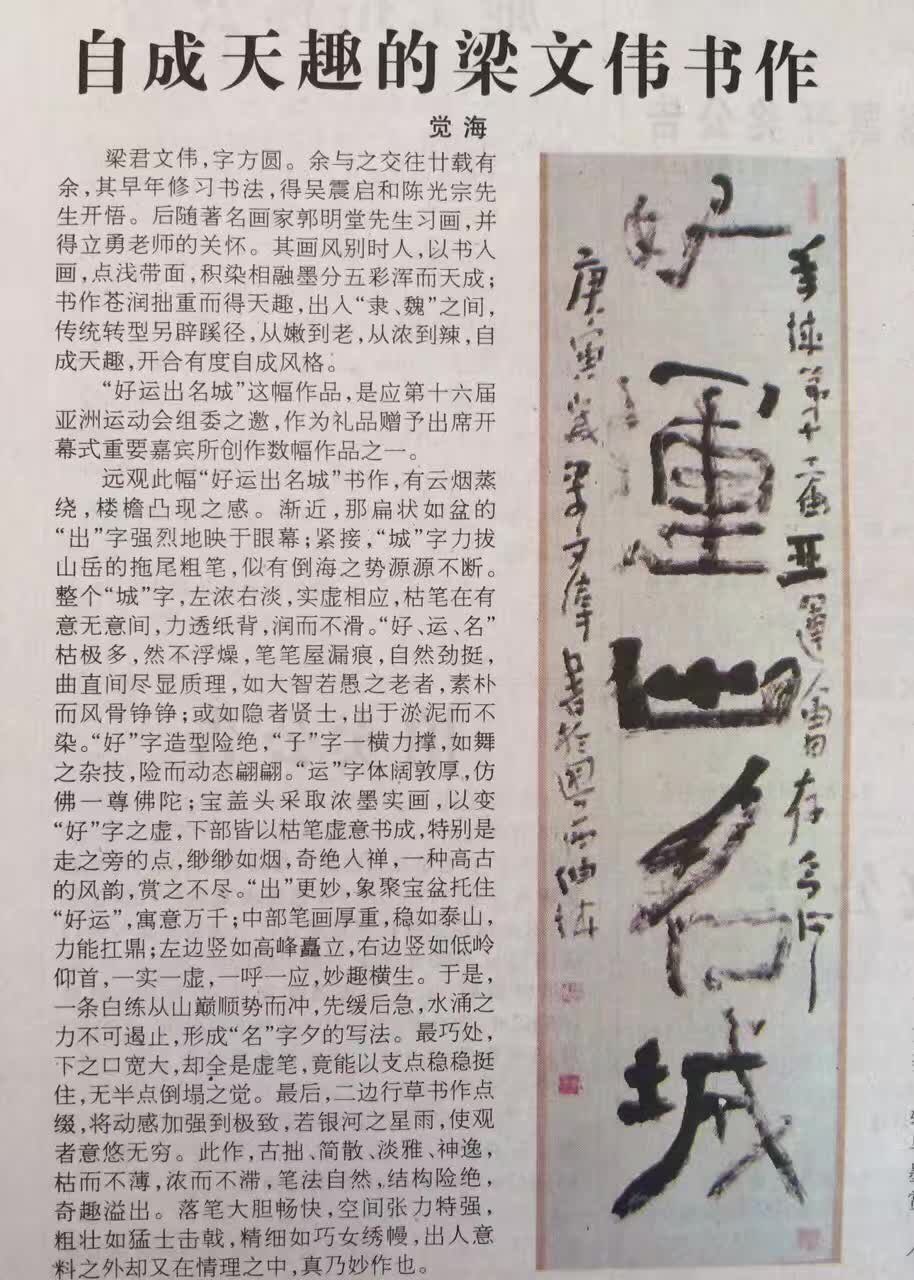 自成天趣的梁文伟书作
觉海
梁君文伟，字方圆。余与之交往廿载有
余，其早年修习书法，得吴震启和陈光宗先
生开悟。后随著名画家郭明堂先生习画，并
得立勇老师的关怀。其画风别时人，以书入
画，点浅带面，积染相融墨分五彩浑而天成；
书作苍润拙重而得天趣，出入“隶、魏”之间，
传统转型另辟蹊径，从嫩到老，从浓到辣，自
成天趣，开合有度自成风格。
“好运出名城”这幅作品，是应第十六届
亚洲运动会组委之邀，作为礼品赠予出席开
幕式重要嘉宾所创作数幅作品之一。
远观此幅“好运出名城”书作，有云烟蒸
绕，楼檐凸现之感。渐近，那扁状如盆的
“出”字强烈地映于眼幕；紧接，“城”字力拔
山岳的拖尾粗笔，似有倒海之势源源不断。
整个“城”字，左浓右淡，实虚相应，枯笔在有
意无意间，力透纸背，润而不滑。“好、运、名”
枯极多，然不浮燥，笔笔屋漏痕，自然劲挺，
曲直间尽显质理，如大智若愚之老者，素朴
而风骨铮铮；或如隐者贤士，出于淤泥而不
染。“好”字造型险绝，“子”字一横力撑，如舞
之杂技，险而动态翩翩。“运”字体阔敦厚，仿
佛一尊佛陀；宝盖头采取浓墨实画，以变
“好”字之虚，下部皆以枯笔虚意书成，特别是
走之旁的点，缈缈如烟，奇绝入禅，一种高古
的风韵，赏之不尽。“出”更妙，象聚宝盆托住
“好运”，寓意万千；中部笔画厚重，稳如泰山，
力能扛鼎；左边竖如高峰矗立，右边竖如低岭
仰首，一实一虚，一呼一应，妙趣横生。于是，
一条白练从山巅顺势而冲，先缓后急，水涌之
力不可遏止，形成“名”字夕的写法。最巧处，
下之口宽大，却全是虚笔，竟能以支点稳稳挺
住，无半点倒塌之觉。最后，二边行草书作点
缀，将动感加强到极致，若银河之星雨，使观
者意悠无穷。此作，古拙、简散、淡雅、神逸，
枯而不薄，浓而不滞，笔法自然，结构险绝，
奇趣溢出。落笔大胆畅快，空间张力特强，
粗壮如猛士击戟，精细如巧女绣幔，出人意
料之外却又在情理之中，真乃妙作也。
好運出名城
庚寅歲梁文偉書於